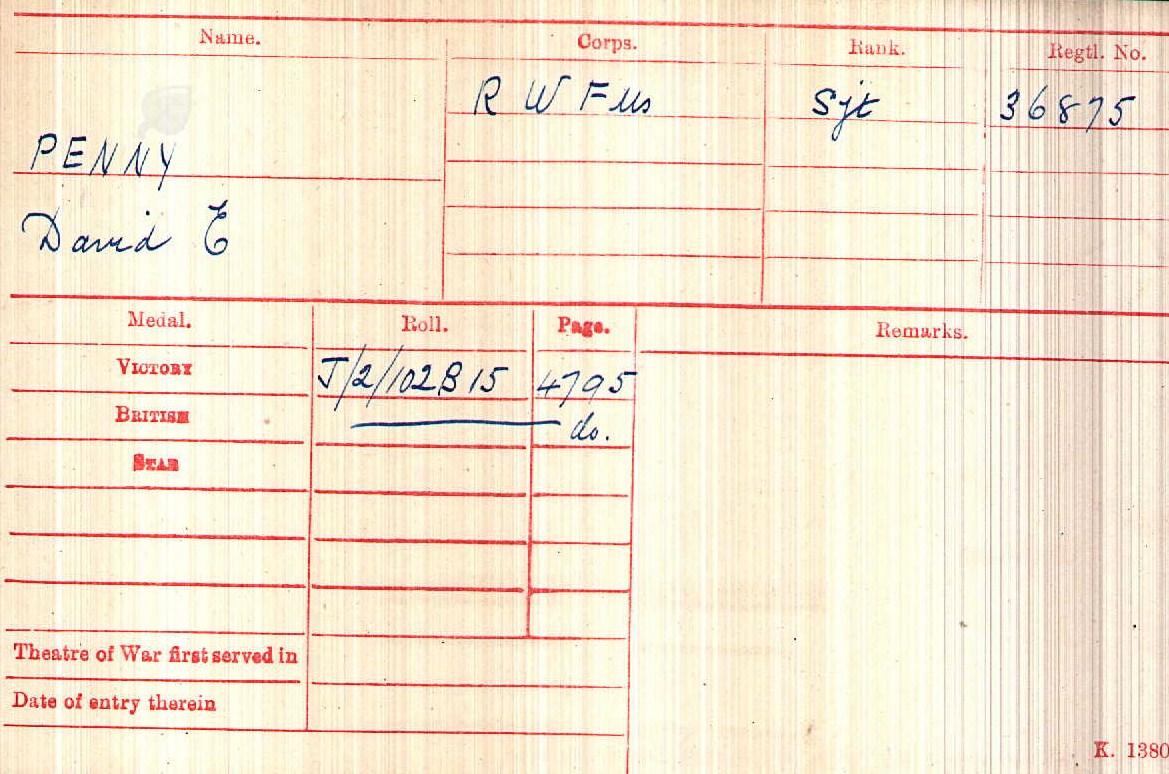 Name. Corps. Rank. Regtl. No.
R W Fus Sjt 36875
PENNY
David E
Medal. Roll. Page. Remarks.
VICTORY J/2/102B15 4795
BRITISH do.
STAR
Theatre of War first served in
Date of entry therein
K. 1380